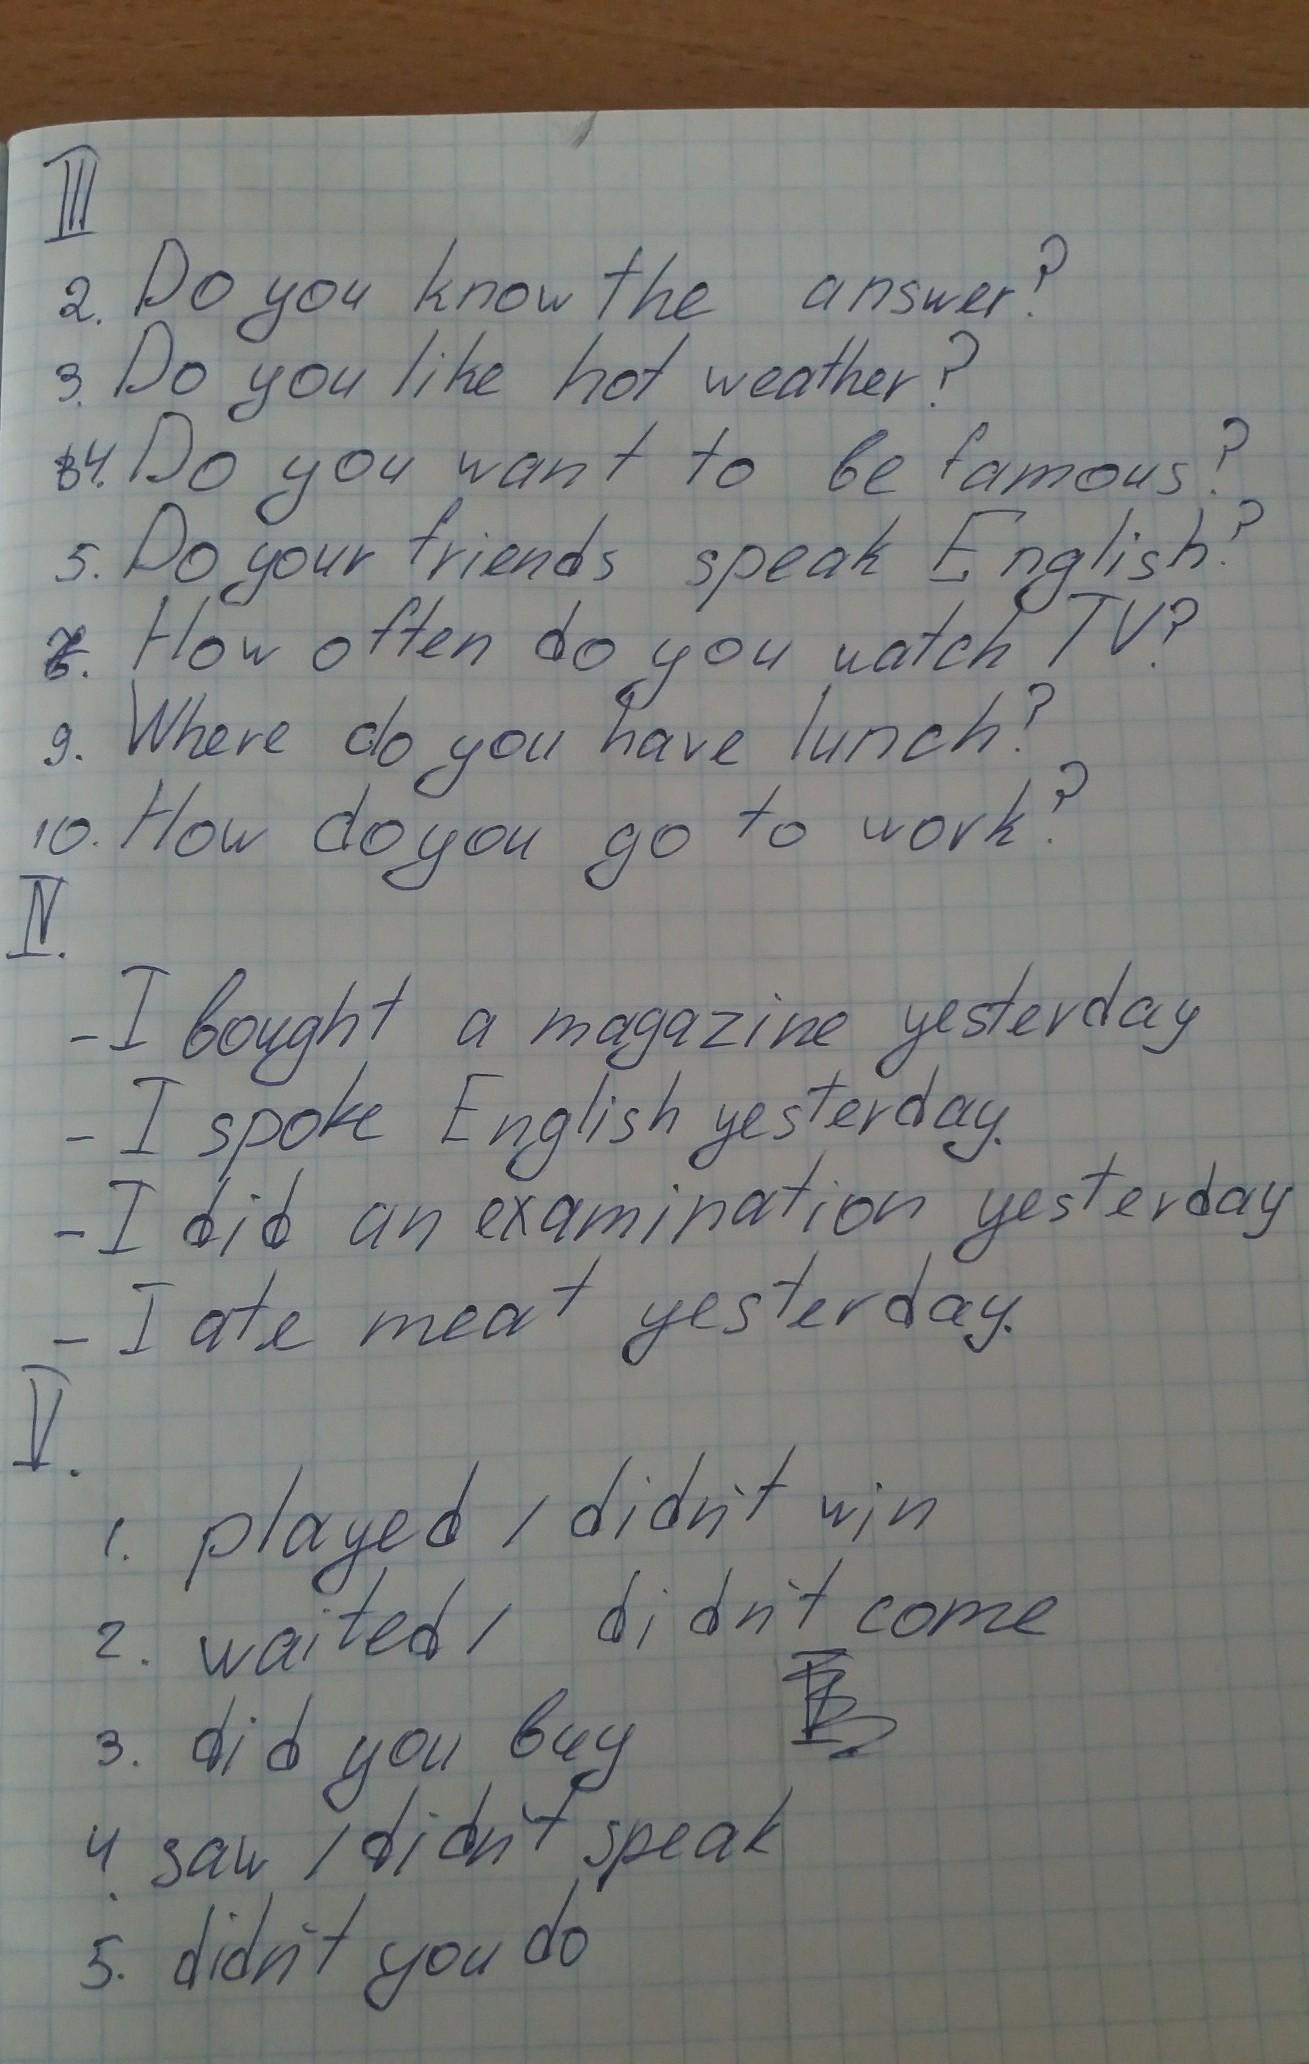 III
2. Do you know the answer?
3. Do you like hot weather?
4. Do you want to be famous?
5. Do your friends speak English?
6. How often do you watch TV?
9. Where do you have lunch?
10. How do you go to work?
IV.
- I bought a magazine yesterday
- I spoke English yesterday.
- I did an examination yesterday
- I ate meat yesterday.
V.
1. played / didn't win
2. waited / didn't come
3. did you buy
4. saw / didn't speak
5. didn't you do